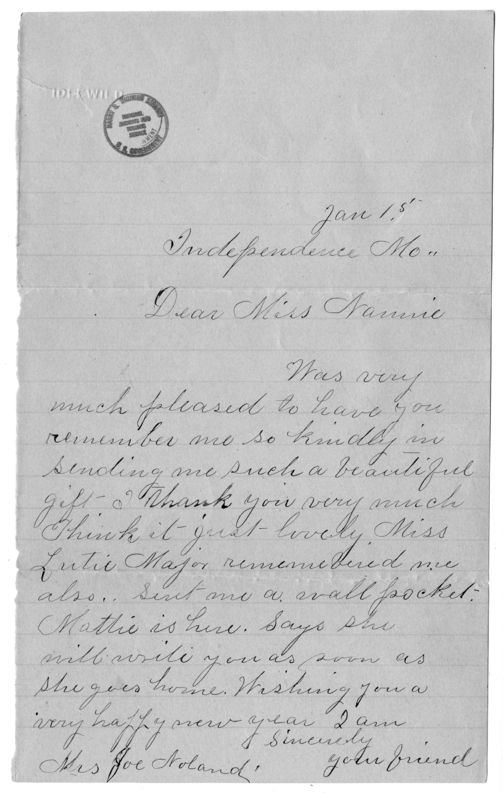 IDLEWILD
HARRY S. TRUMAN LIBRARY
NATIONAL ARCHIVES AND RECORDS SERVICE
U. S. GOVERNMENT
Jan 1.5
Independence Mo..
Dear Miss Nannie
Was very
much pleased to have you
remember me so kindly in
sending me such a beautiful
gift I thank you very much
Think it just lovely Miss
Lutie Major rememeired me
also.. sent me a wall pocket.
Mattie is here. Says she
will write you as soon as
she goes home. Wishing you a
very happy new year I am
Sincerely
your friend
Mrs Joe Noland.